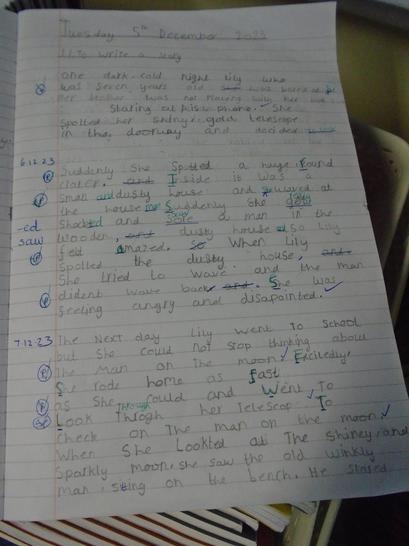 Tuesday 5th December 2023
L.I. To write a story
One dark cold night Lily who
was seven years old was bored of
her brother was not playing with her
staring at his phone. She
spotted her shiny gold telescope
in the doorway and decided
6.12.23 Suddenly she spotted a huge, round
crater. and Inside it was a
small and dusty house and waved at
the house. Suddenly she
-ed Shocked and a man in the
saw wooden, and dusty house so Lily
felt amazed. so When Lily
spotted the dusty house, and
She tried to wave and the man
dident wave back and. She was
feeling angry and disapointed.
7.12.23 The Next day Lily went To School
but She could not stop thinking about
The Man on the moon. Excitedly,
She rode home as fast
as She could and Went To
Look Throgh Through her Telescope. To
check on The man on the moon
When She Lookted at The shiney, and
Sparkly moon, she saw the old winkly
man, siting on the bench. He stared